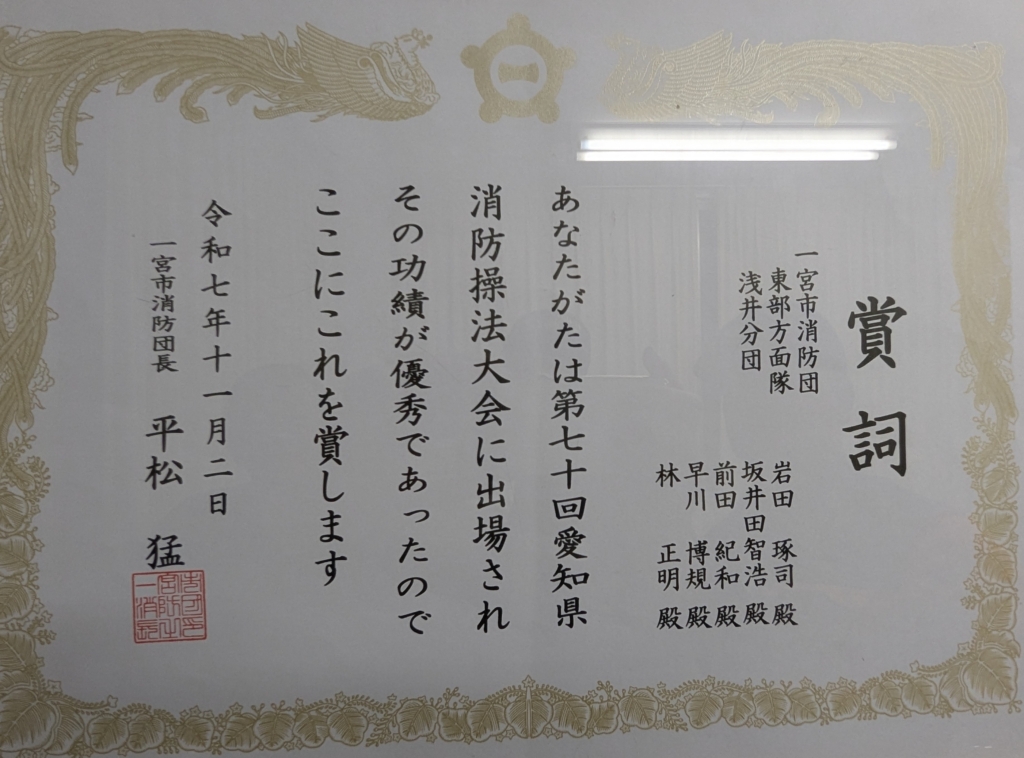 賞詞
一宮市消防団
東部方面隊
浅井分団
岩田 琢司 殿
坂井田智浩 殿
前田 紀和 殿
早川 博規 殿
林 正明 殿
あなたがたは第七十回愛知県
消防操法大会に出場され
その功績が優秀であったので
ここにこれを賞します
令和七年十一月二日
一宮市消防団長 平松 猛